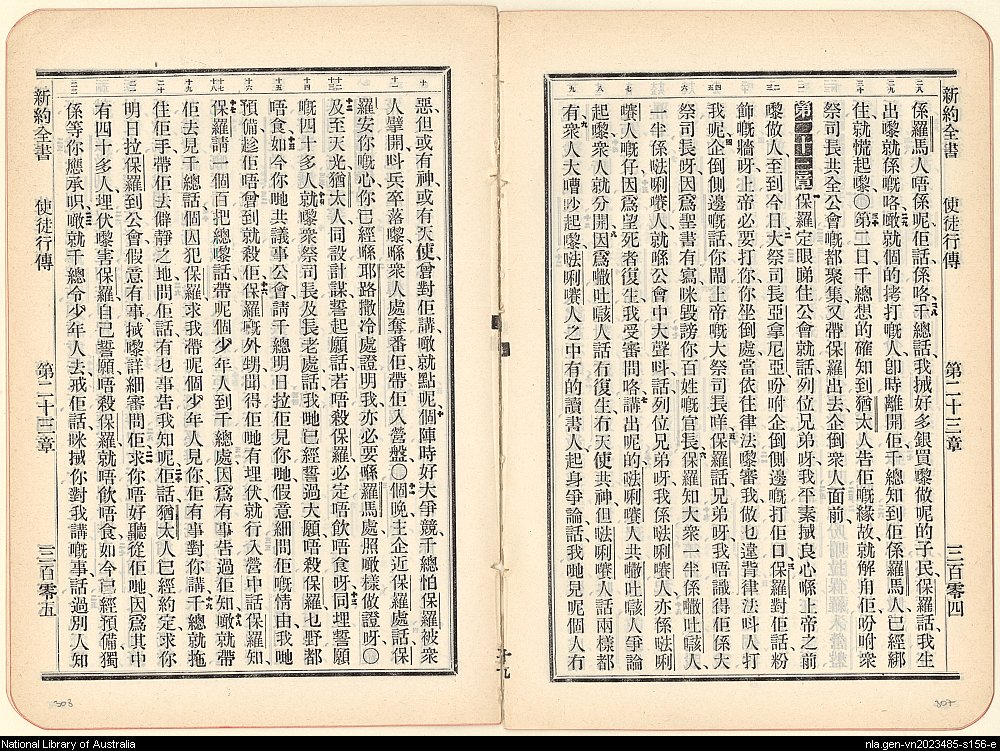 新約全書 使徒行傳 第二十三章 三百零四
係羅馬人唔係呢佢話係咯千總話我搣好多銀買嚟做呢的子民保羅話我生
出嚟就係嘅咯噉就個的拷打嘅人卽時離開佢千總知到佢係羅馬人已經綁
住就慌起嚟○第二日千總想的確知到猶太人告佢嘅緣故就解甪佢吩咐衆
祭司長共全公會嘅都聚集又帶保羅出去企倒衆人面前
第二十三章 保羅定眼睇住公會就話列位兄弟呀我平素搣良心喺上帝之前
嚟做人至到今日大祭司長亞拿尼亞吩咐企倒側邊嘅打佢口保羅對佢話粉
飾嘅牆呀上帝必要打你你坐倒處當依住律法嚟審我做乜違背律法呌人打
我呢企倒側邊嘅話你閙上帝嘅大祭司長咩保羅話兄弟呀我唔識得佢係大
祭司長呀因爲聖書有寫咪毀謗你百姓嘅官長保羅知大衆一半係吐人
一半係唎人就喺公會中大聲呌話列位兄弟呀我係唎人亦係唎
人嘅仔因爲望死者復生我受審問咯講出呢的唎人共吐人爭論
起嚟衆人就分開因爲吐人話冇復生冇天使共神但唎人話兩樣都
有衆人大嘈吵起嚟唎人之中有的讀書人起身爭論話我哋見呢個人冇
新約全書 使徒行傳 第二十三章 三百零五
惡但或有神或有天使曾對佢講噉就點呢個陣時好大爭競千總怕保羅被衆
人擘開呌兵卒落嚟喺衆人處奪番佢帶佢入營盤○個晚主企近保羅處話保
羅安你嘅心你已經喺耶路撒冷處證明我亦必要喺羅馬處照噉樣做證呀○
及至天光猶太人同設計謀誓起願話若唔殺保羅必定唔飲唔食呀同埋誓願
嘅四十多人就嚟衆祭司長及長老處話我哋已經誓過大願唔殺保羅乜野都
唔食如今你哋共議事公會請千總明日拉佢見你哋假意細問佢嘅情由我哋
預備趁佢唔曾到就殺佢保羅嘅外甥聞得佢哋有埋伏就行入營中話保羅知
保羅請一個百把總嚟話帶呢個少年人到千總處因爲有事告過佢知噉就帶
佢去見千總話個因犯保羅求我帶呢個少年人見你佢有事對你講千總就拖
住佢手帶佢去僻靜之地問佢話有乜事告我知呢佢話猶太人已經約定求你
明日拉保羅到公會假意有事搣嚟詳細審問佢求你唔好聽從佢哋因爲其中
有四十多人埋伏嚟害保羅自己誓願唔殺保羅就唔飲唔食如今已經預備獨
係等你應承呮噉就千總令少年人去戒佢話咪搣你對我講嘅事話過別人知
National Library of Australia
nla.gen-vn2023485-s156-e